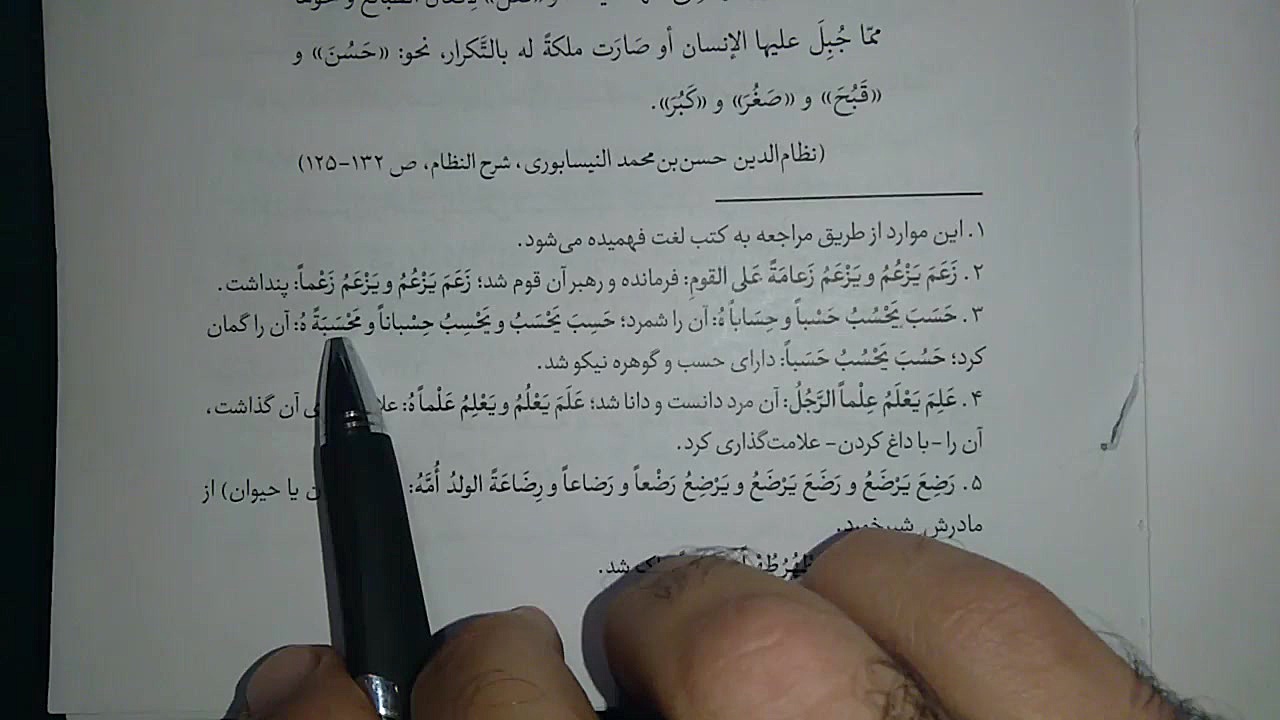 ممّا جُبِلَ عليها الإنسان أو صَارَت ملكةً له بالتَّكرار، نحو: «حَسُنَ» و
«قَبُحَ» و «صَغُرَ» و «كَبُرَ».
(نظام‌الدین حسن‌بن‌محمد النیسابوری، شرح النظام، ص ۱۳۲-۱۲۵)
۱. این موارد از طریق مراجعه به کتب لغت فهمیده می‌شود.
۲. زَعَمَ يَزْعُمُ و يَزْعَمُ زَعامَةً عَلى القومِ: فرمانده و رهبر آن قوم شد؛ زَعَمَ يَزْعُمُ و يَزْعَمُ زَعْماً: پنداشت.
۳. حَسَبَ يَحْسُبُ حَسْباً و حِسَاباً هُ: آن را شمرد؛ حَسِبَ يَحْسَبُ و يَحْسِبُ حِسْباناً و مَحْسَبَةً هُ: آن را گمان
کرد؛ حَسُبَ يَحْسُبُ حَسَباً: دارای حسب و گوهره نیکو شد.
۴. عَلِمَ يَعْلَمُ عِلْماً الرَّجُلُ: آن مرد دانست و دانا شد؛ عَلَمَ يَعْلُمُ و يَعْلِمُ عَلْماً هُ: آن گذاشت،
آن را -با داغ کردن- علامت‌گذاری کرد.
۵. رَضِعَ يَرْضَعُ و رَضَعَ يَرْضَعُ و يَرْضِعُ رَضْعاً و رَضاعاً و رِضَاعَةً الولدُ أُمَّهُ: یا حیوان) از
مادرش شیر خورد.
شد.